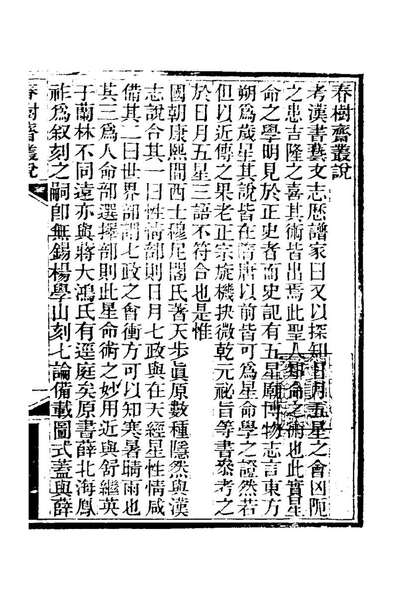 春樹齋叢說
考漢書藝文志厯譜家曰又以探知日月五星之會凶阨
之患吉隆之喜其術皆出焉此聖人知命之術也此實星
命之學明見於正史者而史記有五星廟博物志言東方
朔爲歲星其說皆在隋唐以前皆可爲星命學之證然若
但以近傳之果老正宗旋機抉微乾元祕旨等書叅考之
於日月五星三語不符合也是惟
國朝康熙間西士穆尼閣氏著天步眞原數種隱然與漢
志說合其一曰性情部則日月七政與在天經星性情咸
備其二曰世界部則七政之會衝方可以知寒暑晴雨也
其三爲人命部選擇部則此星命術之妙用近與舒繼英
于蘭林不同遠亦與將大鴻氏有逕庭矣原書薛北海鳳
祚爲叙刻之嗣卽無錫楊學山刻七論備載圖式蓋與薛
春樹齋叢說
一